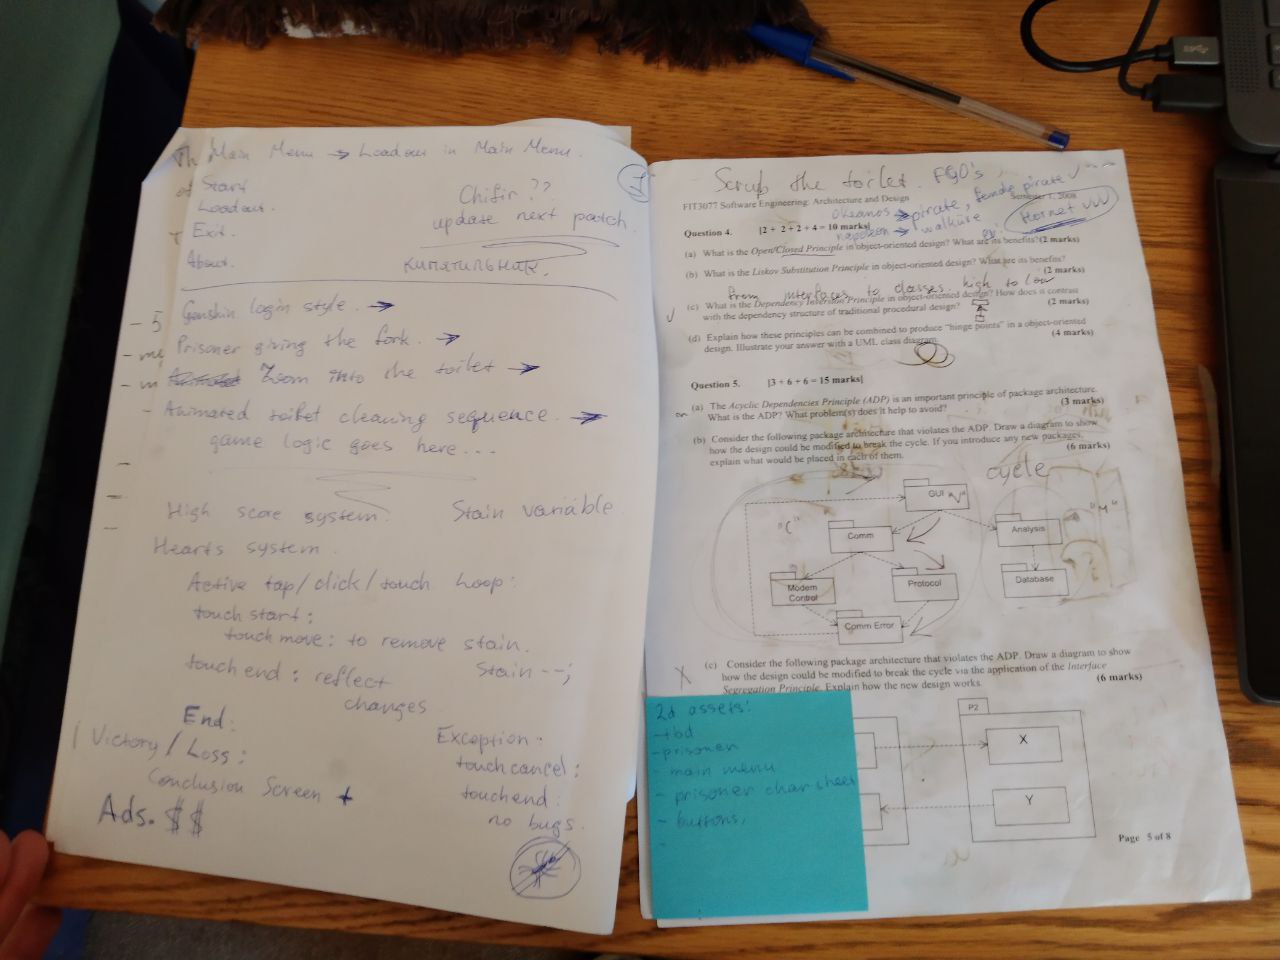 Main Menu → Loadout in Main Menu.
Start
Loadout.
Exit.
About.
Chifir ??
update next patch.
кипятильник.
Genshin login style. →
Prisoner giving the fork. →
Zoom into the toilet →
- Animated toilet cleaning sequence. →
game logic goes here...
High score system.
Stain variable
Hearts system.
Active tap/click/touch loop:
touch start:
touch move: to remove stain.
touch end: reflect
changes
Stain--;
End:
Victory/Loss:
Conclusion Screen +
Ads. $$
Exception:
touch cancel:
touch end:
no bugs.
Scrub the toilet.
FIT3077 Software Engineering: Architecture and Design
Semester 1, 2008
pirate, female pirate
walküre
Hornet
Question 4. [2 + 2 + 2 + 4 = 10 marks]
(a) What is the Open/Closed Principle in object-oriented design? What are its benefits? (2 marks)
(b) What is the Liskov Substitution Principle in object-oriented design? What are its benefits?
(2 marks)
from interfaces to classes. high to low
(c) What is the Dependency Inversion Principle in object-oriented design? How does it contrast
with the dependency structure of traditional procedural design?
(2 marks)
(d) Explain how these principles can be combined to produce "hinge points" in a object-oriented
design. Illustrate your answer with a UML class diagram.
(4 marks)
Question 5. [3 + 6 + 6 = 15 marks]
(a) The Acyclic Dependencies Principle (ADP) is an important principle of package architecture.
What is the ADP? What problem(s) does it help to avoid?
(3 marks)
(b) Consider the following package architecture that violates the ADP. Draw a diagram to show
how the design could be modified to break the cycle. If you introduce any new packages,
explain what would be placed in each of them.
(6 marks)
cycle
GUI "V"
"C"
Comm
Analysis
"M"
Modem
Control
Protocol
Database
Comm Error
X
(c) Consider the following package architecture that violates the ADP. Draw a diagram to show
how the design could be modified to break the cycle via the application of the Interface
Segregation Principle. Explain how the new design works.
(6 marks)
2d assets:
- tbd
- prisoner
- main menu
- prisoner char sheet
- buttons,
-
P2
X
Y
Page 5 of 8